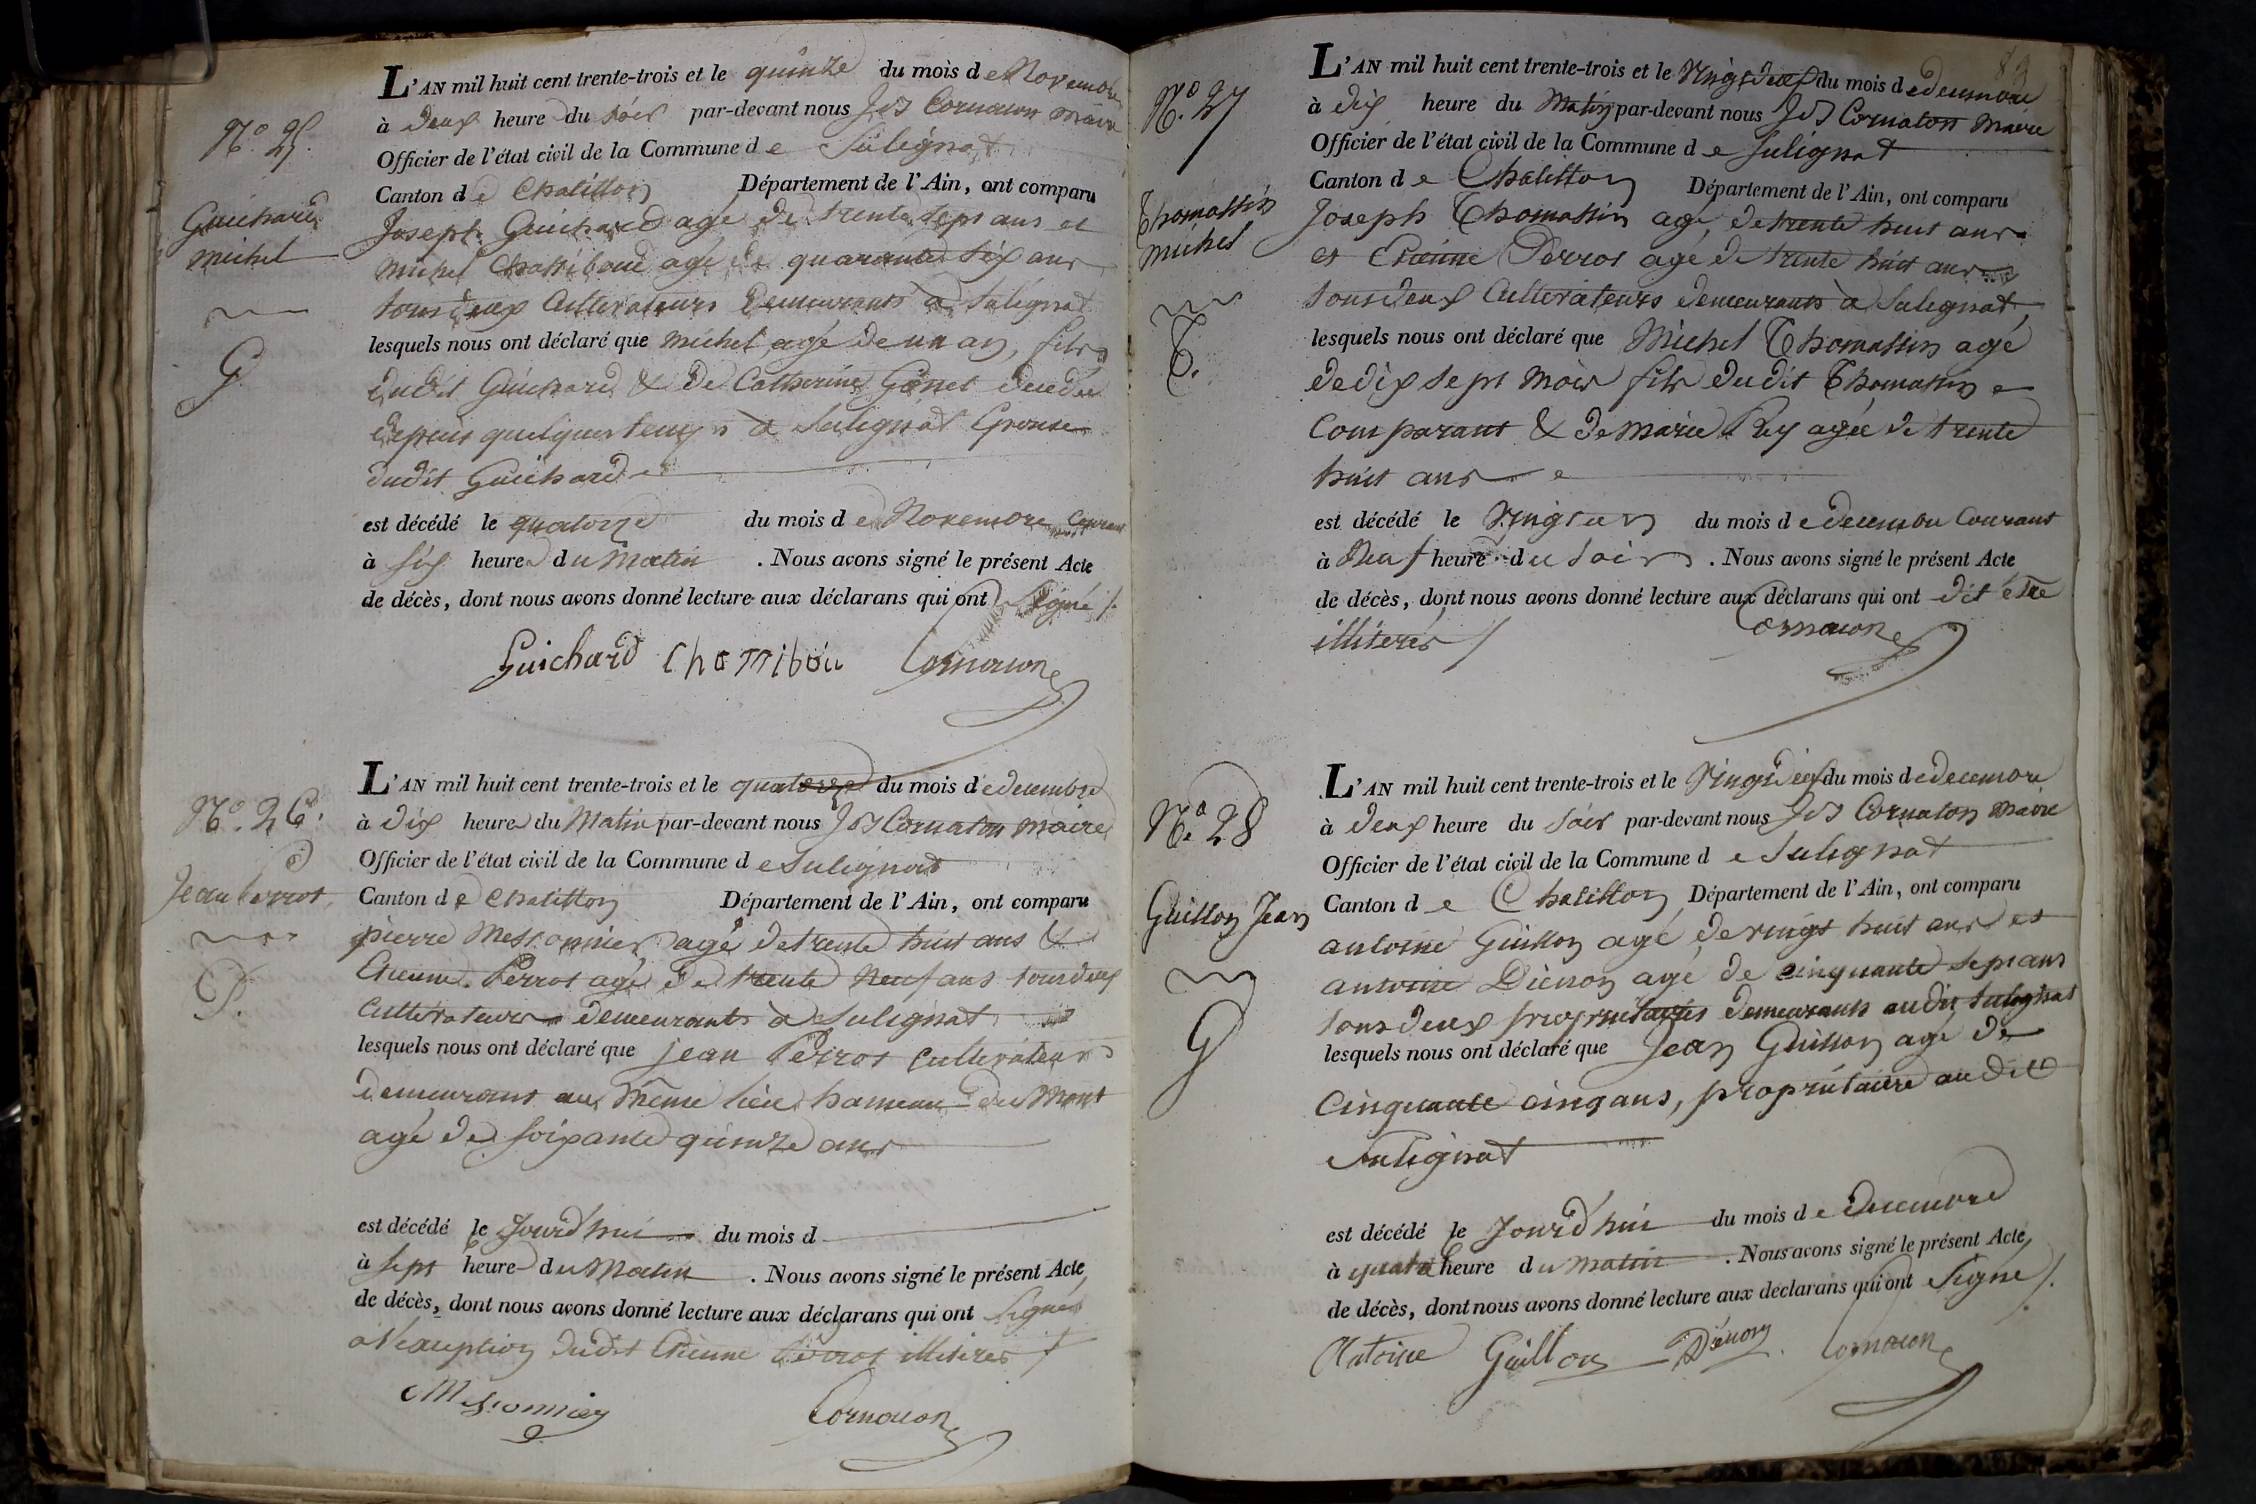 N.º 25.
Guichard
Michel
G
L'AN mil huit cent trente-trois et le quinze du mois de Novembre
à deux heure du soir par-devant nous Jes Cornaton maire
Officier de l'état civil de la Commune de Sulignat
Canton de Chatillon Département de l'Ain, ont comparu
Joseph Guichard agé de trente sept ans et
michel Chassibout agé de quarante six ans
tous deux Cultivateurs demeurants à Sulignat
lesquels nous ont déclaré que michel agé de un an, fils
dudit Guichard & de Catherine decedée
depuis quelques temps à Sulignat Epouse
dudit Guichard
est décédé le quatorze du mois de Novembre Courant
à six heure du Matin . Nous avons signé le présent Acte
de décès, dont nous avons donné lecture aux déclarans qui ont signé /.
Guichard Cornaton
N.º 26.
Jean Perrot
P.
L'AN mil huit cent trente-trois et le quatorze du mois de decembre
à dix heure du Matin par-devant nous Jes Cornaton maire
Officier de l'état civil de la Commune de Sulignat
Canton de Chatillon Département de l'Ain, ont comparu
pierre Messonnier agé de trente huit ans &
Etienne Perrot agé de trente neuf ans tous deux
Cultivateurs demeurants à Sulignat
lesquels nous ont déclaré que jean Perrot cultivateur
demeurant au même lieu hameau du Mont
agé de soixante quinze ans
est décédé le jourd'hui du mois d
à sept heure du Matin . Nous avons signé le présent Acte
de décès, dont nous avons donné lecture aux déclarans qui ont signés
à l'exception dudit Etienne Perrot illiteres /
Messonnier Cornaton
89
N.º 27
Thomassin
michel
T.
L'AN mil huit cent trente-trois et le Vingt deux du mois de decembre
à dix heure du Matin par-devant nous Jes Cornaton maire
Officier de l'état civil de la Commune de Sulignat
Canton de Chatillon Département de l'Ain, ont comparu
Joseph Thomassin agé de trente huit ans
et Etienne Perrot agé de trente huit ans
tous deux Cultivateurs demeurants à Sulignat
lesquels nous ont déclaré que Michel Thomassin agé
de dix sept mois fils dudit Thomassin
Comparant & de marie Rey agée de trente
huit ans
est décédé le Vingt un du mois de decembre Courant
à Neuf heure du soir . Nous avons signé le présent Acte
de décès, dont nous avons donné lecture aux déclarans qui ont dit être
illiterés / Cornaton
N.º 28
Guillon Jean
G
L'AN mil huit cent trente-trois et le Vingt deux du mois de decembre
à deux heure du soir par-devant nous Jes Cornaton maire
Officier de l'état civil de la Commune de Sulignat
Canton de Chatillon Département de l'Ain, ont comparu
antoine Guillon agé de vingt huit ans et
antoine Dienon agé de cinquante sept ans
tous deux propriétaires demeurants audit Sulignat
lesquels nous ont déclaré que Jean Guillon agé de
cinquante cinq ans, propriétaire audit
Sulignat
est décédé le Jourd'hui du mois de decembre
à quatre heure du matin . Nous avons signé le présent Acte
de décès, dont nous avons donné lecture aux déclarans qui ont signé /.
Antoine Guillon Dienon Cornaton